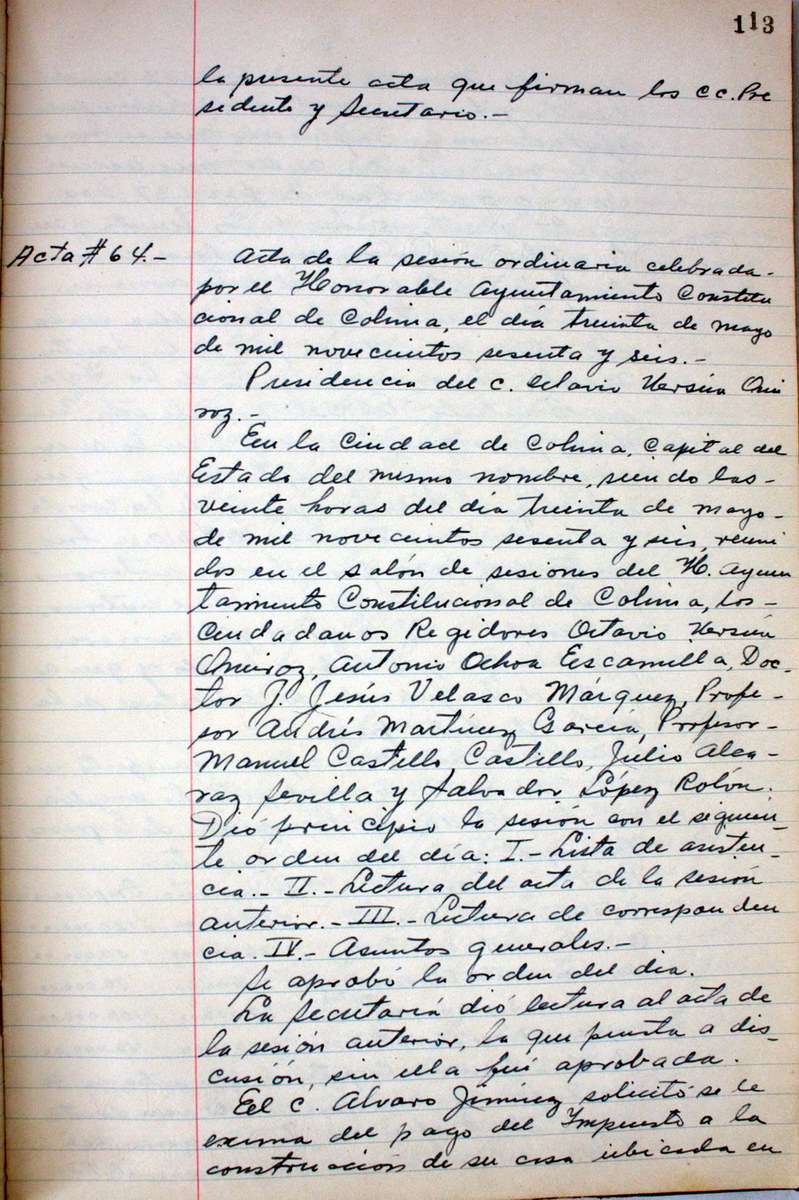 113
la presente acta que firman los cc. Pre
sidente y Secretario.-
Acta # 64.-
Acta de la sesión ordinaria celebrada-
por el Honorable Ayuntamiento Constitu
cional de Colima, el día treinta de mayo
de mil novecientos sesenta y seis.-
Presidencia del c. Octavio Versín Qui
roz.-
En la Ciudad de Colima, Capital del
Estado del mismo nombre, siendo las-
veinte horas del día treinta de mayo-
de mil novecientos sesenta y seis, reuni
dos en el salón de sesiones del H. Ayun
tamiento Constitucional de Colima, los-
Ciudadanos Regidores Octavio Versín
Quiroz, Antonio Ochoa Escamilla, Doc-
tor J. Jesús Velasco Márquez, Profe-
sor Andrés Martínez García, Profesor-
Manuel Castello Castillo, Julio Alca-
raz Sevilla y Salvador López Rolón.
Dió principio la sesión con el siguien-
te orden del día: I.- Lista de asisten-
cia.- II.- Lectura del acta de la sesión
anterior.- III.- Lectura de corresponden
cia. IV.- Asuntos generales.-
Se aprobó la orden del día.
La Secretaría dió lectura al acta de
la sesión anterior, la que puesta a dis-
cusión, sin ella fué aprobada.
El c. Alvaro Jiménez solicitó se le
exima del pago del Impuesto a la
construcción de su casa ubicada en